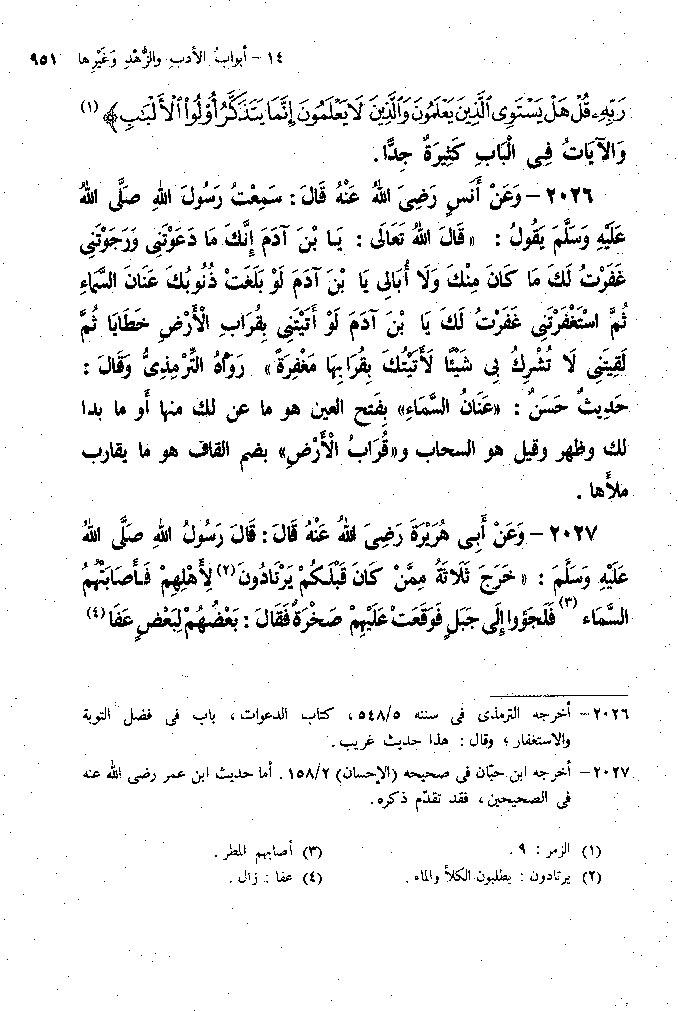 ١٤ - أبوابُ الأدبِ والزُّهْدِ وَغَيْرِها ٩٥١
رَبِّهِۦ قُلْ هَلْ يَسْتَوِى ٱلَّذِينَ يَعْلَمُونَ وَٱلَّذِينَ لَا يَعْلَمُونَ إِنَّمَا يَتَذَكَّرُ أُوْلُواْ ٱلْأَلْبَٰبِ﴾ (١)
وَالآيَاتُ فِى الْبَابِ كَثِيرَةٌ جِدًّا.
٢٠٢٦ - وَعَنْ أَنَسٍ رَضِىَ اللهُ عَنْهُ قَالَ : سَمِعْتُ رَسُولَ اللهِ صَلَّى اللهُ
عَلَيْهِ وَسَلَّمَ يَقُولُ : « قَالَ اللهُ تَعَالَى : يَا بْنَ آدَمَ إِنَّكَ مَا دَعَوْتَنِى وَرَجَوْتَنِى
غَفَرْتُ لَكَ مَا كَانَ مِنْكَ وَلَا أُبَالِى يَا بْنَ آدَمَ لَوْ بَلَغَتْ ذُنُوبُكَ عَنَانَ السَّمَاءِ
ثُمَّ اسْتَغْفَرْتَنِى غَفَرْتُ لَكَ يَا بْنَ آدَمَ لَوْ أَتَيْتَنِى بِقُرَابِ الْأَرْضِ خَطَايَا ثُمَّ
لَقِيتَنِى لَا تُشْرِكُ بِى شَيْئًا لَأَتَيْتُكَ بِقُرَابِهَا مَغْفِرَةً » رَوَاهُ التِّرْمِذِىُّ وَقَالَ :
حَدِيثٌ حَسَنٌ : «عَنَانُ السَّمَاءِ» بِفَتح العين هو ما عن لك منها أو ما بدا
لك وظهر وقيل هو السحاب و«قُرَابُ الْأَرْضِ» بضم القاف هو ما يقارب
ملأها .
٢٠٢٧ - وَعَنْ أَبِى هُرَيْرَةَ رَضِىَ اللهُ عَنْهُ قَالَ : قَالَ رَسُولُ اللهِ صَلَّى اللهُ
عَلَيْهِ وَسَلَّمَ : « خَرَجَ ثَلَاثَةٌ مِمَّنْ كَانَ قَبْلَكُمْ يَرْتَادُونَ (٢) لِأَهْلِهِمْ فَأَصَابَتْهُمُ
السَّمَاء (٣) فَلَجَؤُوا إِلَى جَبَلٍ فَوَقَعَتْ عَلَيْهِمْ صَخْرَةٌ فَقَالَ : بَعْضُهُمْ لِبَعْضٍ عَفَا (٤)
٢٠٢٦ - أخرجه الترمذى فى سننه ٥٤٨/٥، كتاب الدعوات، باب فى فضل التوبة
والاستغفار ؛ وقال : هذا حديث غريب .
٢٠٢٧ - أخرجه ابن حبّان فى صحيحه (الإحسان) ١٥٨/٢. أما حديث ابن عمر رضى الله عنه
فى الصحيحين، فقد تقدّم ذكره.
(١) الزمر : ٩ . (٣) أصابهم المطر .
(٢) يرتادون : يطلبون الكلأ والماء . (٤) عفا : زال .